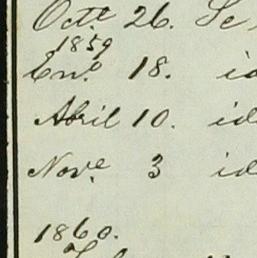 Octe 26. Se
1859
Eno. 18. id
Abril 10. id
Nove 3 id
1860.